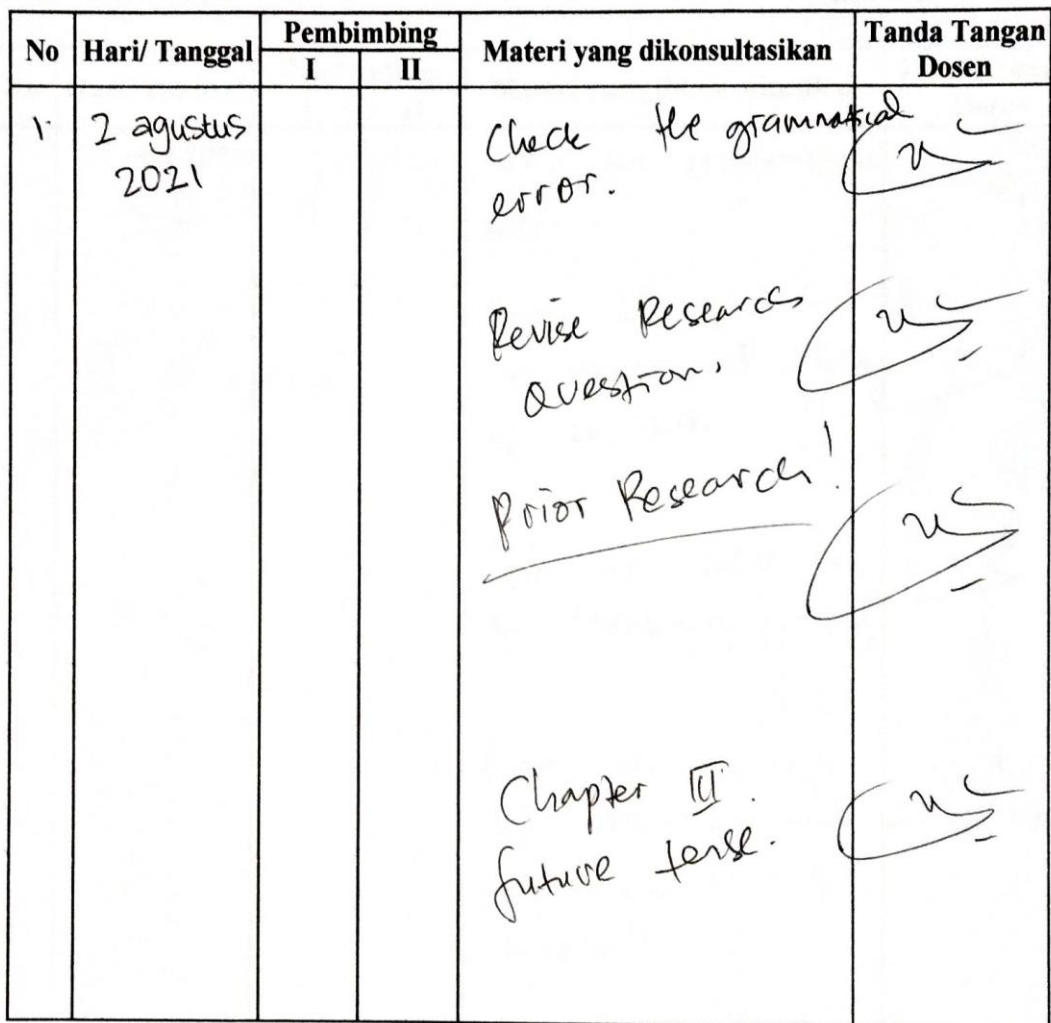 No Hari/ Tanggal Pembimbing Materi yang dikonsultasikan Tanda Tangan
I II Dosen
1. 2 agustus Check the grammatical
2021 error.
Revise Research
Question.
Prior Research!
Chapter III.
future tense.